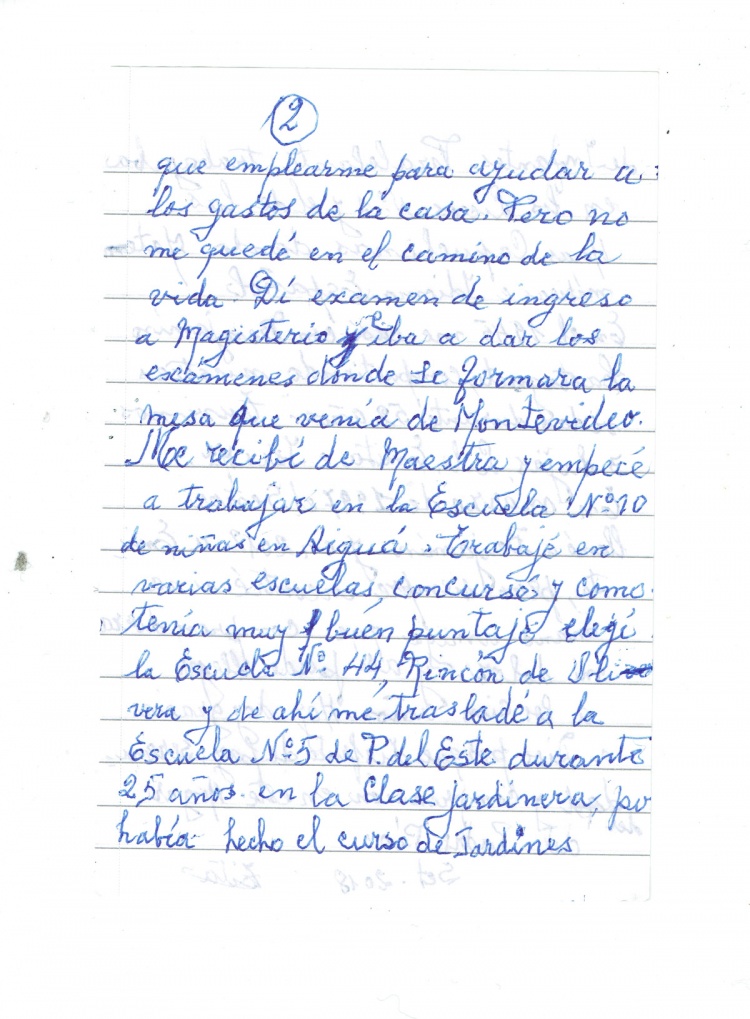 2
que emplearme para ayudar a
los gastos de la casa. Pero no
me quedé en el camino de la
vida. Dí examen de ingreso
a Magisterio y iba a dar los
exámenes donde se formara la
mesa que venía de Montevideo.
Me recibí de Maestra y empecé
a trabajar en la Escuela Nº 10
de niñas en Aiguá. Trabajé en
varias escuelas, concursé y como
tenía muy buén puntaje elegí
la Escuela Nº 44, Rincón de Oli
vera y de ahí me trasladé a la
Escuela Nº 5 de P. del Este durante
25 años en la Clase jardinera, po
había hecho el curso de Jardines
Set. 2018